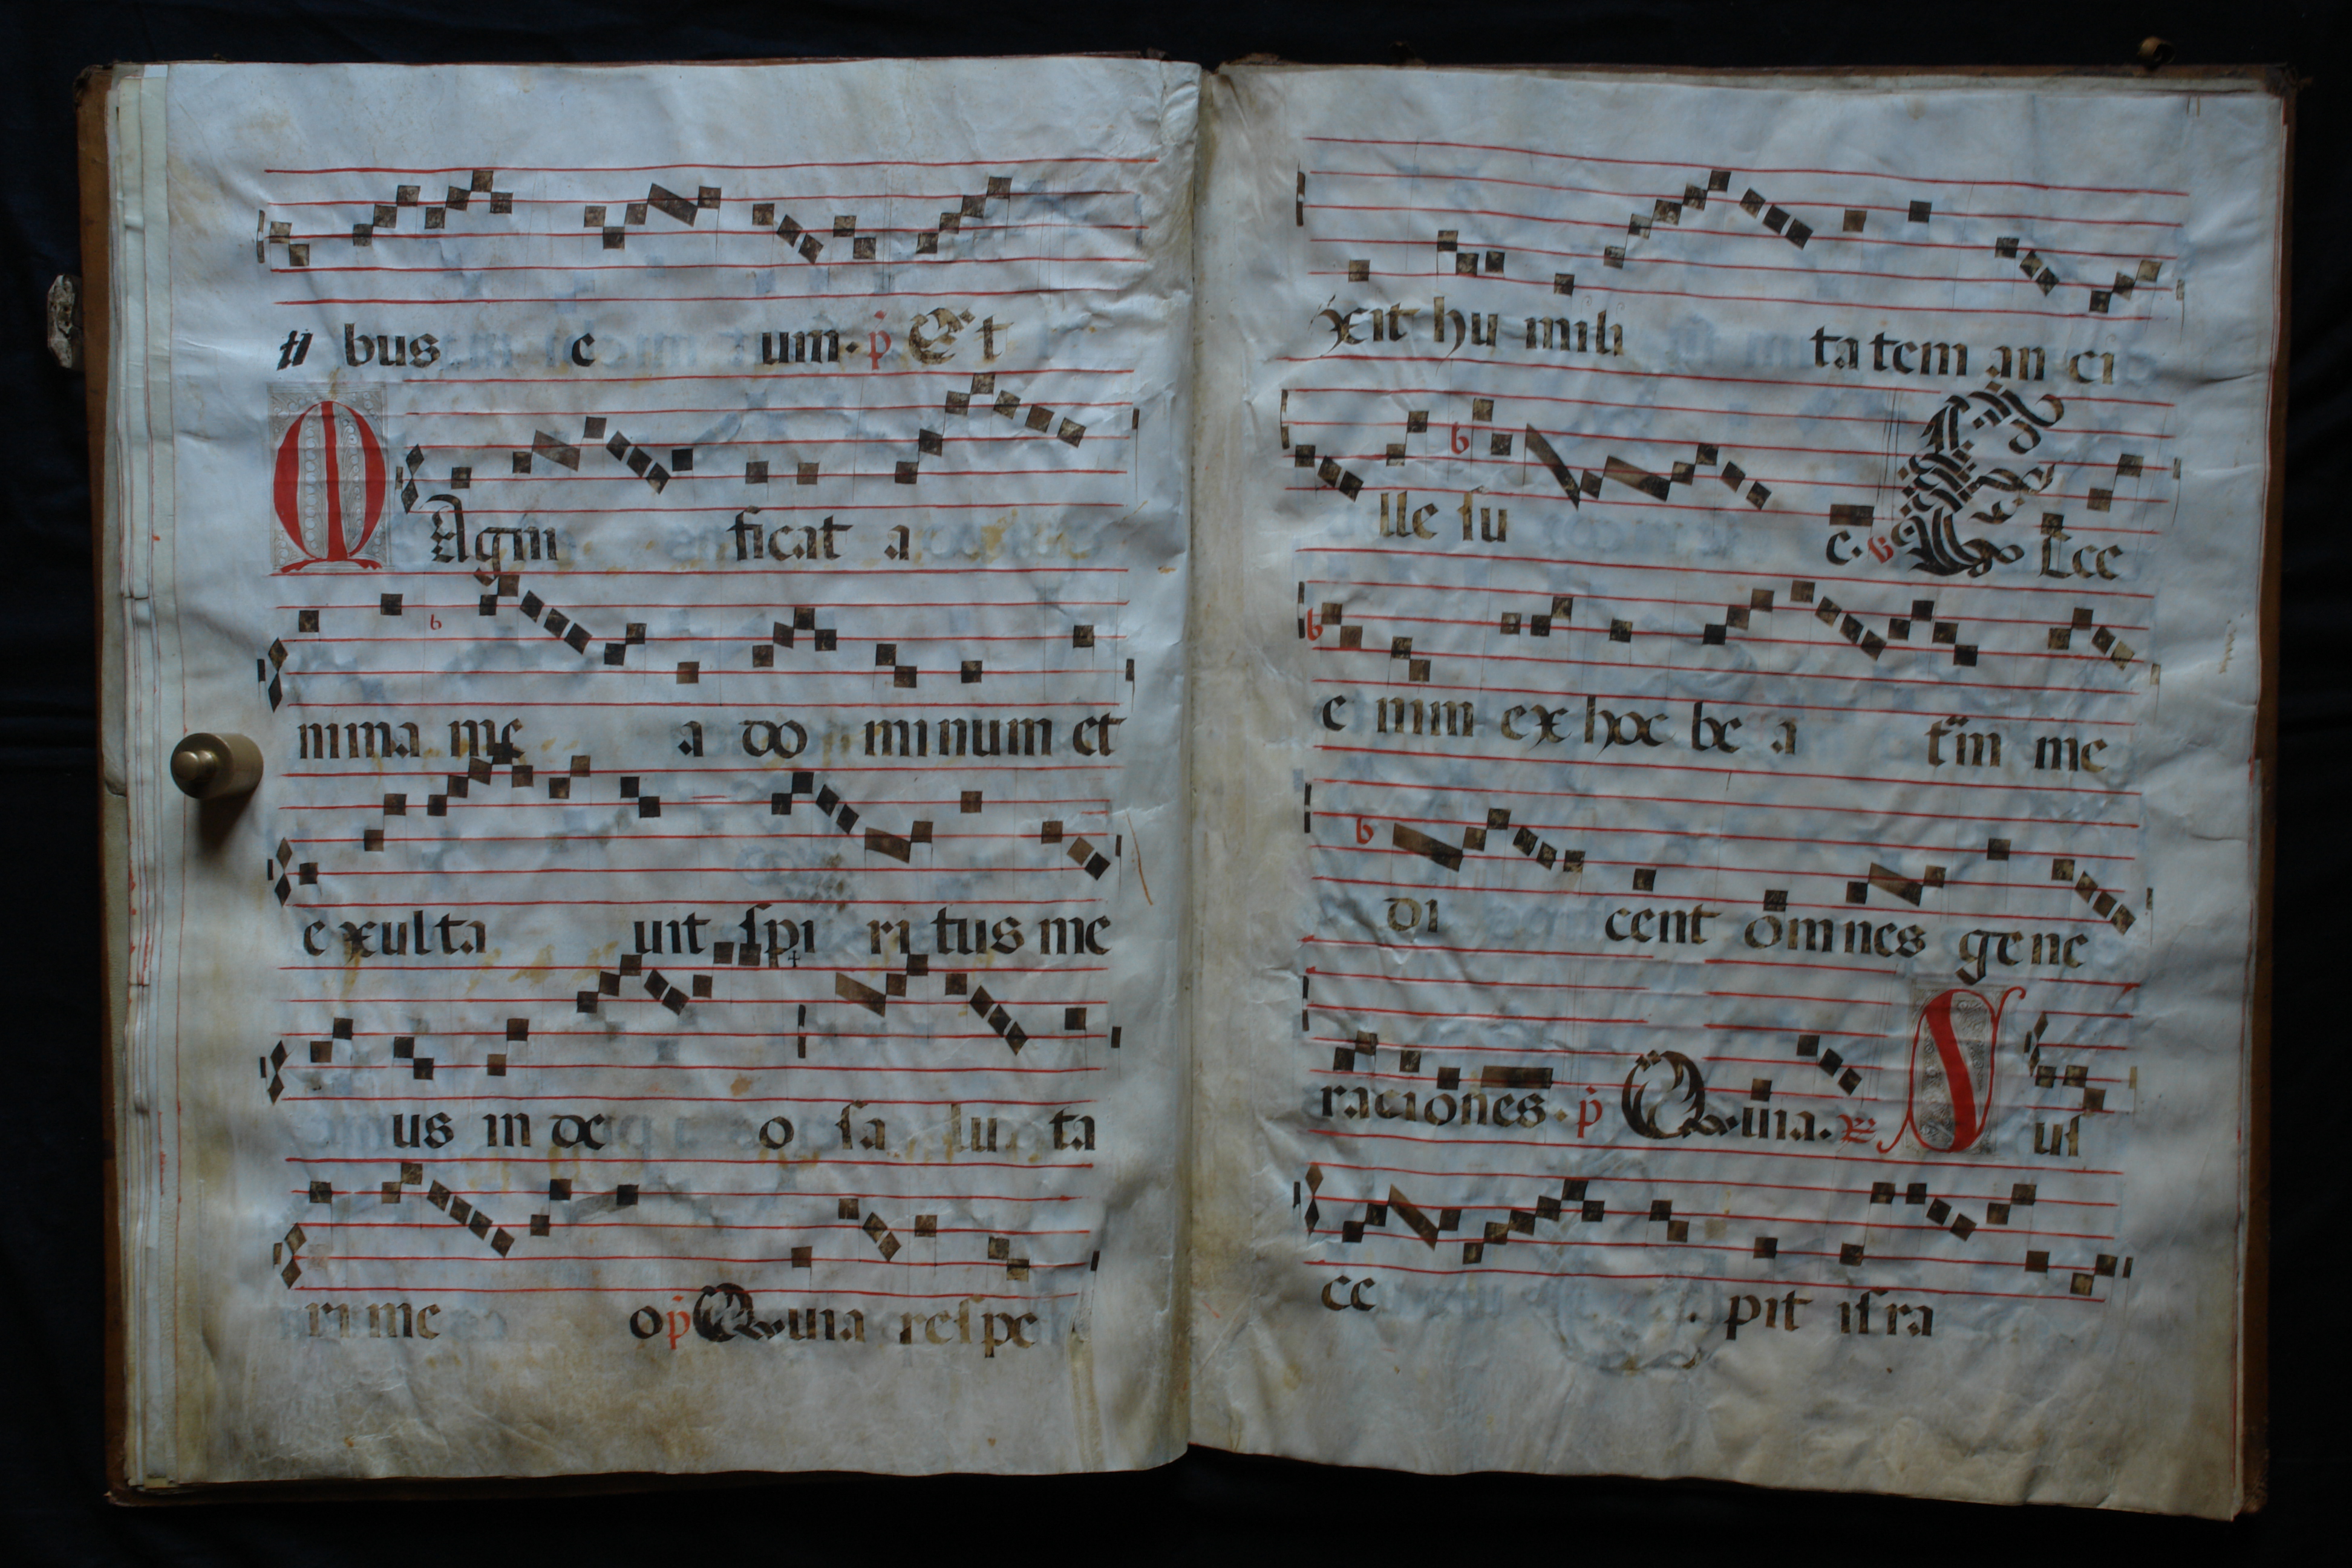 ti bus e um. p Et
M Agni ficat a
nima me a do minum et
e xulta uit spi ri tus me
us in de o sa lu ta
ri me o p Quia respe
xit hu mili ta tem an ci
lle su e. V Ecce
e nim ex hoc be a tam me
di cent omnes gene
raciones. p Quia. R S us
ce pit isra